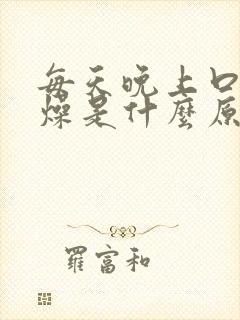 每天晚上口
燥是什麼原
羅富和